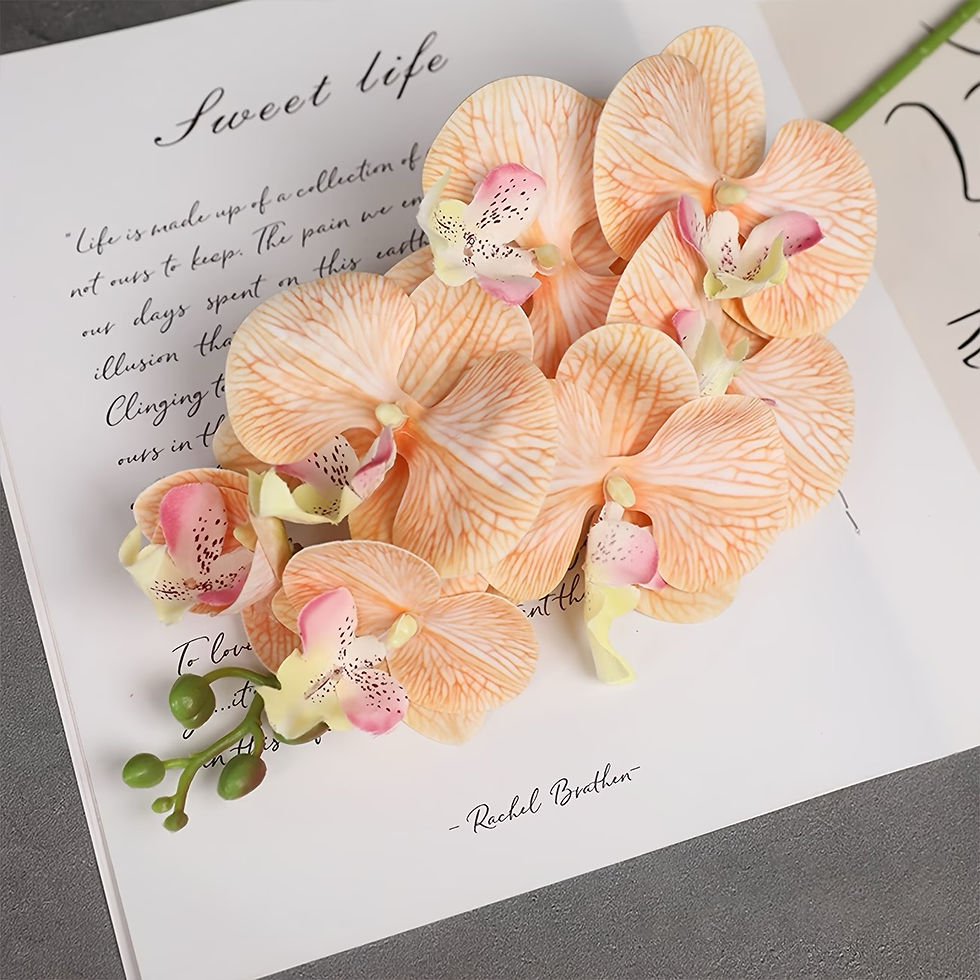 Sweet life
"Life is made up of a collection of
not ours to keep. The pain we en
our days spent on this earth
illusion tha
Clinging to
ours in th
ant th
To love
...it
in this
- Rachel Brathen-